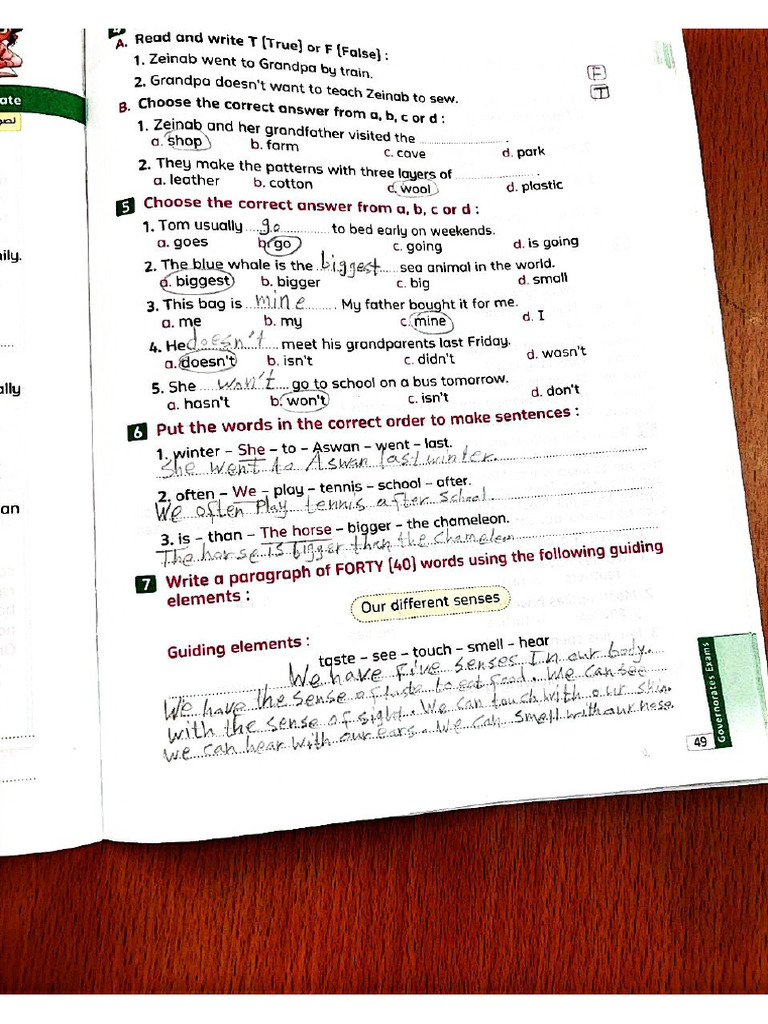 A. Read and write T (True) or F (False) :
1. Zeinab went to Grandpa by train. F
2. Grandpa doesn't want to teach Zeinab to sew. T
B. Choose the correct answer from a, b, c or d :
1. Zeinab and her grandfather visited the ........................ .
a. shop b. farm c. cave d. park
2. They make the patterns with three layers of ........................ .
a. leather b. cotton c. wool d. plastic
5 Choose the correct answer from a, b, c or d :
1. Tom usually go to bed early on weekends.
a. goes b. go c. going d. is going
2. The blue whale is the biggest sea animal in the world.
a. biggest b. bigger c. big d. small
3. This bag is mine . My father bought it for me.
a. me b. my c. mine d. I
4. He doesn't meet his grandparents last Friday.
a. doesn't b. isn't c. didn't d. wasn't
5. She won't go to school on a bus tomorrow.
a. hasn't b. won't c. isn't d. don't
6 Put the words in the correct order to make sentences :
1. winter – She – to – Aswan – went – last.
She went to Aswan last winter.
2. often – We – play – tennis – school – after.
We often Play tennis after School.
3. is – than – The horse – bigger – the chameleon.
The horse is bigger than the Chameleon
7 Write a paragraph of FORTY (40) words using the following guiding
elements :
Our different senses
Guiding elements :
taste – see – touch – smell – hear
We have five senses In our body.
We have the sense of taste to eat food. We Can see
with the sense of sight. We Can touch with our skin.
we can hear with our ears. We can smell with our nose.
Governorates Exams
49
ate
ily.
ally
an